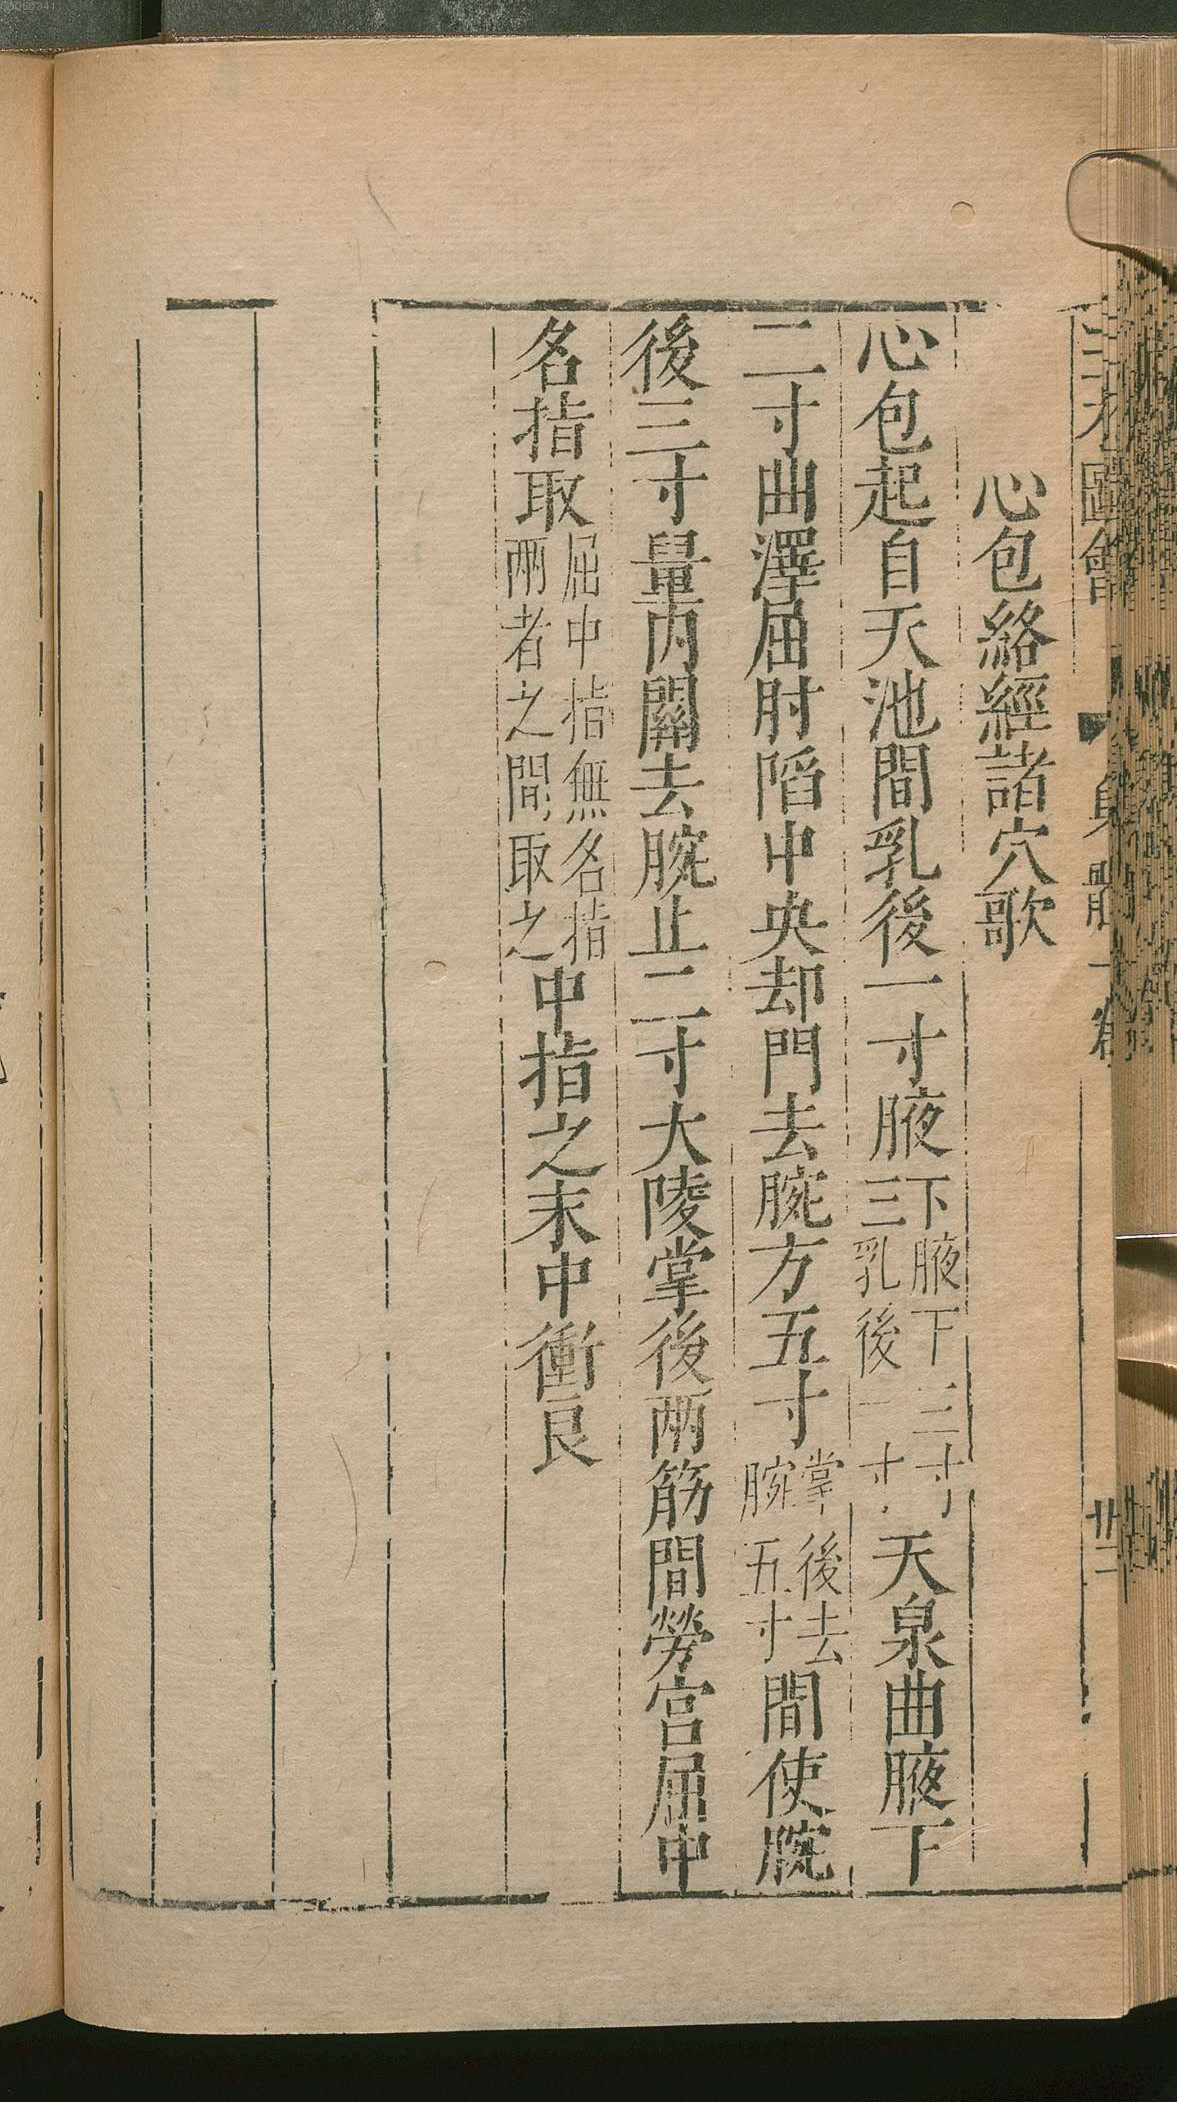 心包絡經諸穴歌
心包起自天池間乳後一寸腋下三腋下三寸乳後一寸天泉曲腋下
二寸曲澤屈肘陷中央却門去腕方五寸掌後去腕五寸間使腕
後三寸量内關去腕止二寸大陵掌後兩筋間勞宮屈中
名指取屈中指無名指兩者之間取之中指之末中衝良